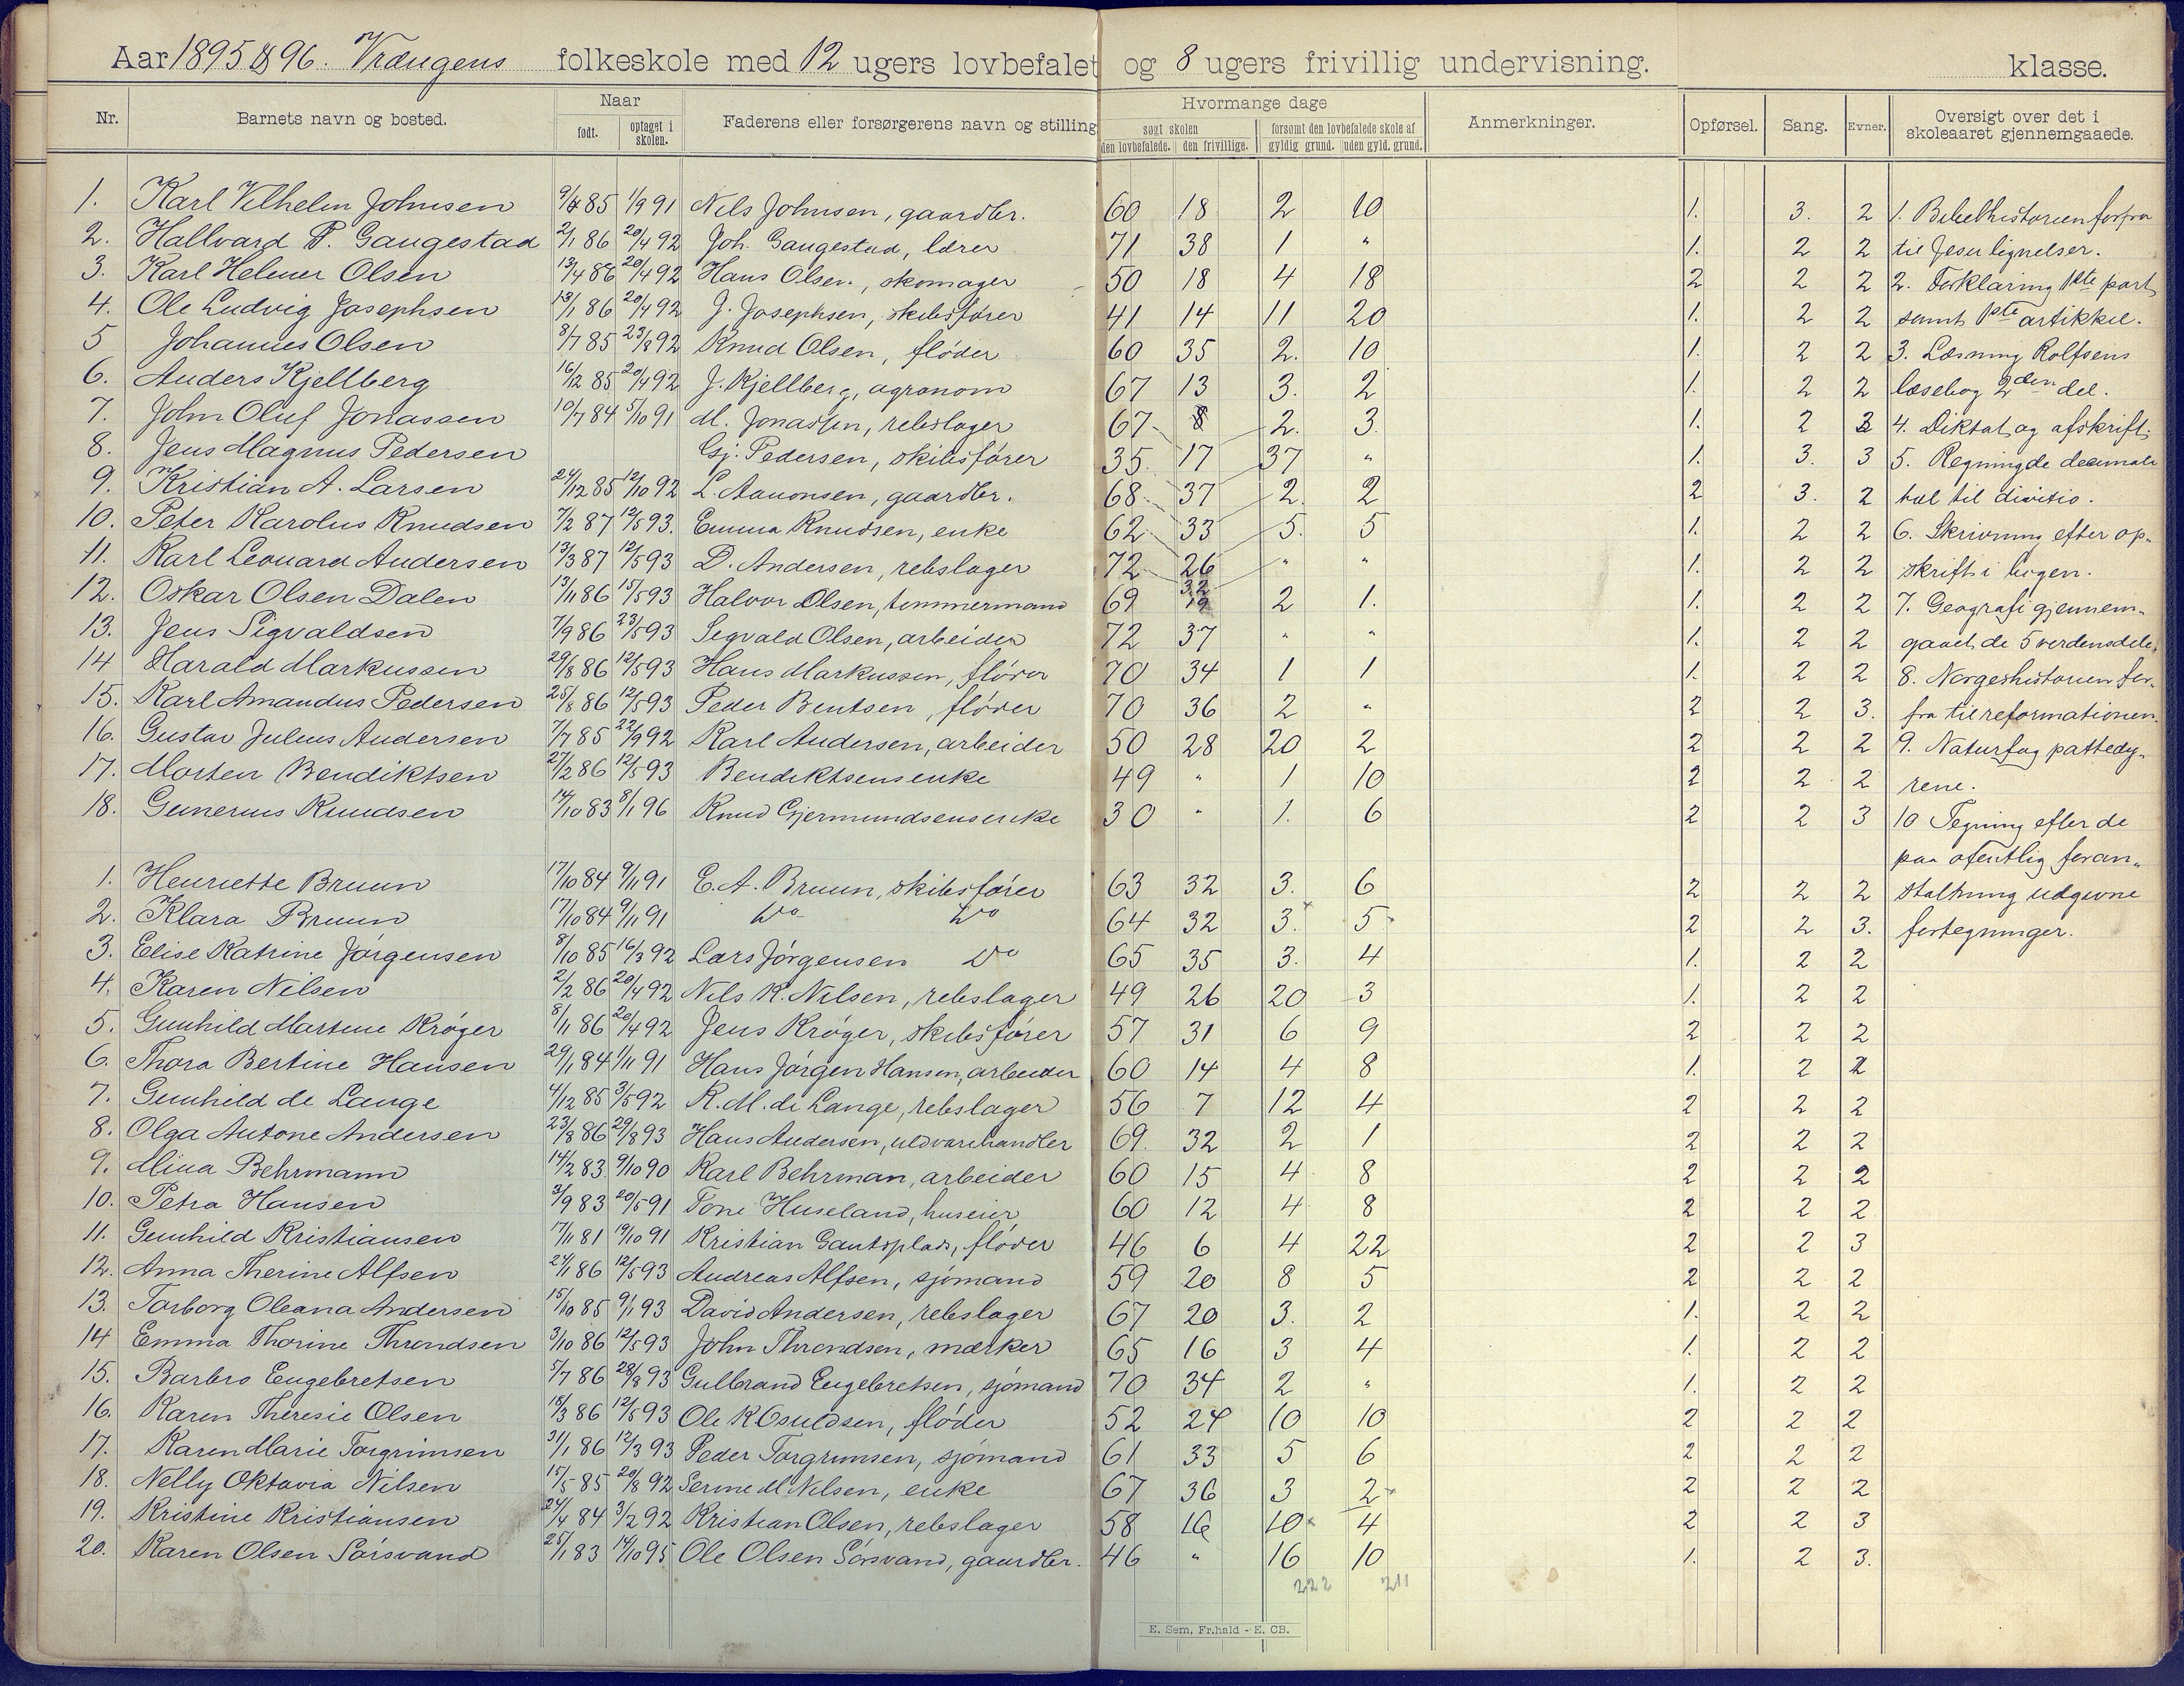 Aar 1895 & 96. Vrængens folkeskole med 12 ugers lovbefalet og 8 ugers frivillig undervisning. klasse.
Nr. Barnets navn og bosted. Naar født. optaget i skolen. Faderens eller forsørgerens navn og stilling Hvormange dage søgt skolen den lovbefalede. den frivillige. forsømt den lovbefalede skole af gyldig grund. uden gyld. grund. Anmerkninger. Opførsel. Sang. Evner. Oversigt over det i skoleaaret gjennemgaaede.
1. Karl Vilhelm Johnsen 9/4 85 1/9 91 Nils Johnsen, gaardbr. 60 18 2 10 1. 3. 2 1. Bibelhistorien forfra
2. Hallvard P. Gaugestad 2/1 86 20/4 92 Joh. Gaugestad, lærer 71 38 1 " 1. 2 2 til Jesu lignelser.
3. Karl Helmer Olsen 13/4 86 20/4 92 Hans Olsen, skomager 50 18 4 18 2 2 2 2. Forklaring 1ste part
4. Ole Ludvig Josephsen 13/1 86 20/4 92 J. Josephsen, skibsfører 41 14 11 20 1. 2 2 samt 1ste artikkel.
5 Johannes Olsen 8/7 85 23/8 92 Knud Olsen, fløder 60 35 2. 10 1. 2 2 3. Læsning Rolfsens
6. Anders Kjellberg 16/12 85 20/4 92 J. Kjellberg, agronom 67 13 3. 2 1. 2 2 læsebog 2den del.
7. John Oluf Jonassen 10/7 84 5/10 91 M. Jonassen, rebslager 67 8 2. 3. 1. 2 3 4. Diktat og afskrift.
8. Jens Magnus Pedersen Gj. Pedersen, skibsfører 35. 17 37 " 1. 3. 3 5. Regning de decimale
9. Kristian A. Larsen 24/12 85 12/10 92 L. Aanonsen, gaardbr. 68 37 2. 2 2 3. 2 tal til divisio.
10. Peter Karolus Knudsen 7/2 87 12/5 93. Emma Knudsen, enke 62 33 5. 5 1. 2 2 6. Skrivning efter op-
11. Karl Leonard Andersen 13/3 87 12/5 93 D. Andersen, rebslager 72 26 " " 1. 2 2 skrift i bogen.
12. Oskar Olsen Dalen 13/11 86 15/5 93 Halvor Olsen, tømmermand 69 32 19 2 1. 1. 2 2 7. Geografi gjennem-
13. Jens Sigvaldsen 7/9 86 23/5 93 Segvald Olsen, arbeider 72 37 " " 1. 2 2 gaaet de 5 verdensdele.
14 Harald Markussen 29/8 86 12/5 93 Hans Markussen, fløder 70 34 1 1 1. 2 2 8. Norgeshistorien for-
15. Karl Amandus Pedersen 25/8 86 12/5 93 Peder Bentsen, fløder 70 36 2 " 2 2 3. fra til reformationen.
16. Gustav Julius Andersen 7/7 85 22/9 92 Karl Andersen, arbeider 50 28 20 2 2 2 2 9. Naturfag pattedy-
17. Morten Bendiktsen 27/2 86 12/5 93 Bendiktsens enke 49 " 1 10 2 2 2 rene.
18. Gunerius Knudsen 14/10 83 8/1 96 Knud Gjermundsens enke 30 " 1. 6 2 2 3 10 Tegning efter de
paa ofentlig foran-
1. Henriette Bruun 17/10 84 9/11 91 E. A. Bruun, skibsfører 63 32 3. 6 2 2 2 staltning udgivne
2. Klara Bruun 17/10 84 9/11 91 Do Do 64 32 3. 5 2 2 3. fortegninger.
3. Elise Katrine Jørgensen 8/10 85 16/3 92 Lars Jørgensen Do 65 35 3. 4 1. 2 2
4. Karen Nilsen 2/2 86 20/4 92 Nils K. Nilsen, rebslager 49 26 20 3 1. 2 2
5. Gunhild Martine Krøger 8/11 86 20/4 92 Jens Krøger, skibsfører 57 31 6 9 2 2 2
6. Thora Bertine Hansen 29/1 84 1/11 91 Hans Jørgen Hansen, arbeider 60 14 4 8 1. 2 2
7. Gunhild de Lange 4/12 85 3/5 92 R. M. de Lange, rebslager 56 7 12 4 2 2 2
8. Olga Antone Andersen 23/8 86 29/8 93 Hans Andersen, uldvarehandler 69. 32 2 1 2 2 2
9. Mina Behrmann 14/2 83 9/10 90 Karl Behrman, arbeider 60 15 4 8 2 2 2
10. Petra Hansen 3/9 83 20/5 91 Tone Huseland, huseier 60 12 4 8 2 2 2
11. Gunhild Kristiansen 17/11 81 19/10 91 Kristian Gautsplads, fløder 46 6 4 22 2 2 3
12. Anna Therine Alfsen 24/1 86 12/5 93 Andreas Alfsen, sjømand 59 20 8 5 2 2 2
13. Torborg Oleana Andersen 15/10 85 9/1 93 David Andersen, rebslager 67 20 3. 2 1. 2 2
14 Emma Thorine Throndsen 3/10 86 12/5 93 John Throndsen, mærker 65 16 3 4 1. 2 2
15. Barbro Engebretsen 5/7 86 28/8 93 Gulbrand Engebretsen, sjømand 70 34 2 " 1. 2 2
16. Karen Theresie Olsen 18/3 86 12/5 93 Ole K Osuldsen, fløder 52 24 10 10 2 2 2
17. Karen Marie Torgrimsen 31/1 86 12/3 93 Peder Torgrimsen, sjømand 61 33 5 6 2 2 2
18. Nelly Oktavia Nilsen 15/5 85 20/8 92 Serine M Nilsen, enke 67 36 3 2 2 2 2
19. Kristine Kristiansen 24/4 84 3/2 92 Kristian Olsen, rebslager 58 16 10 4 2 2 3
20. Karen Olsen Sørsvand 25/1 83 14/10 95 Ole Olsen Sørsvand, gaardbr. 46 " 16 10 1. 2 3.
222 211
E. Sem, Fr.hald - E. CB.